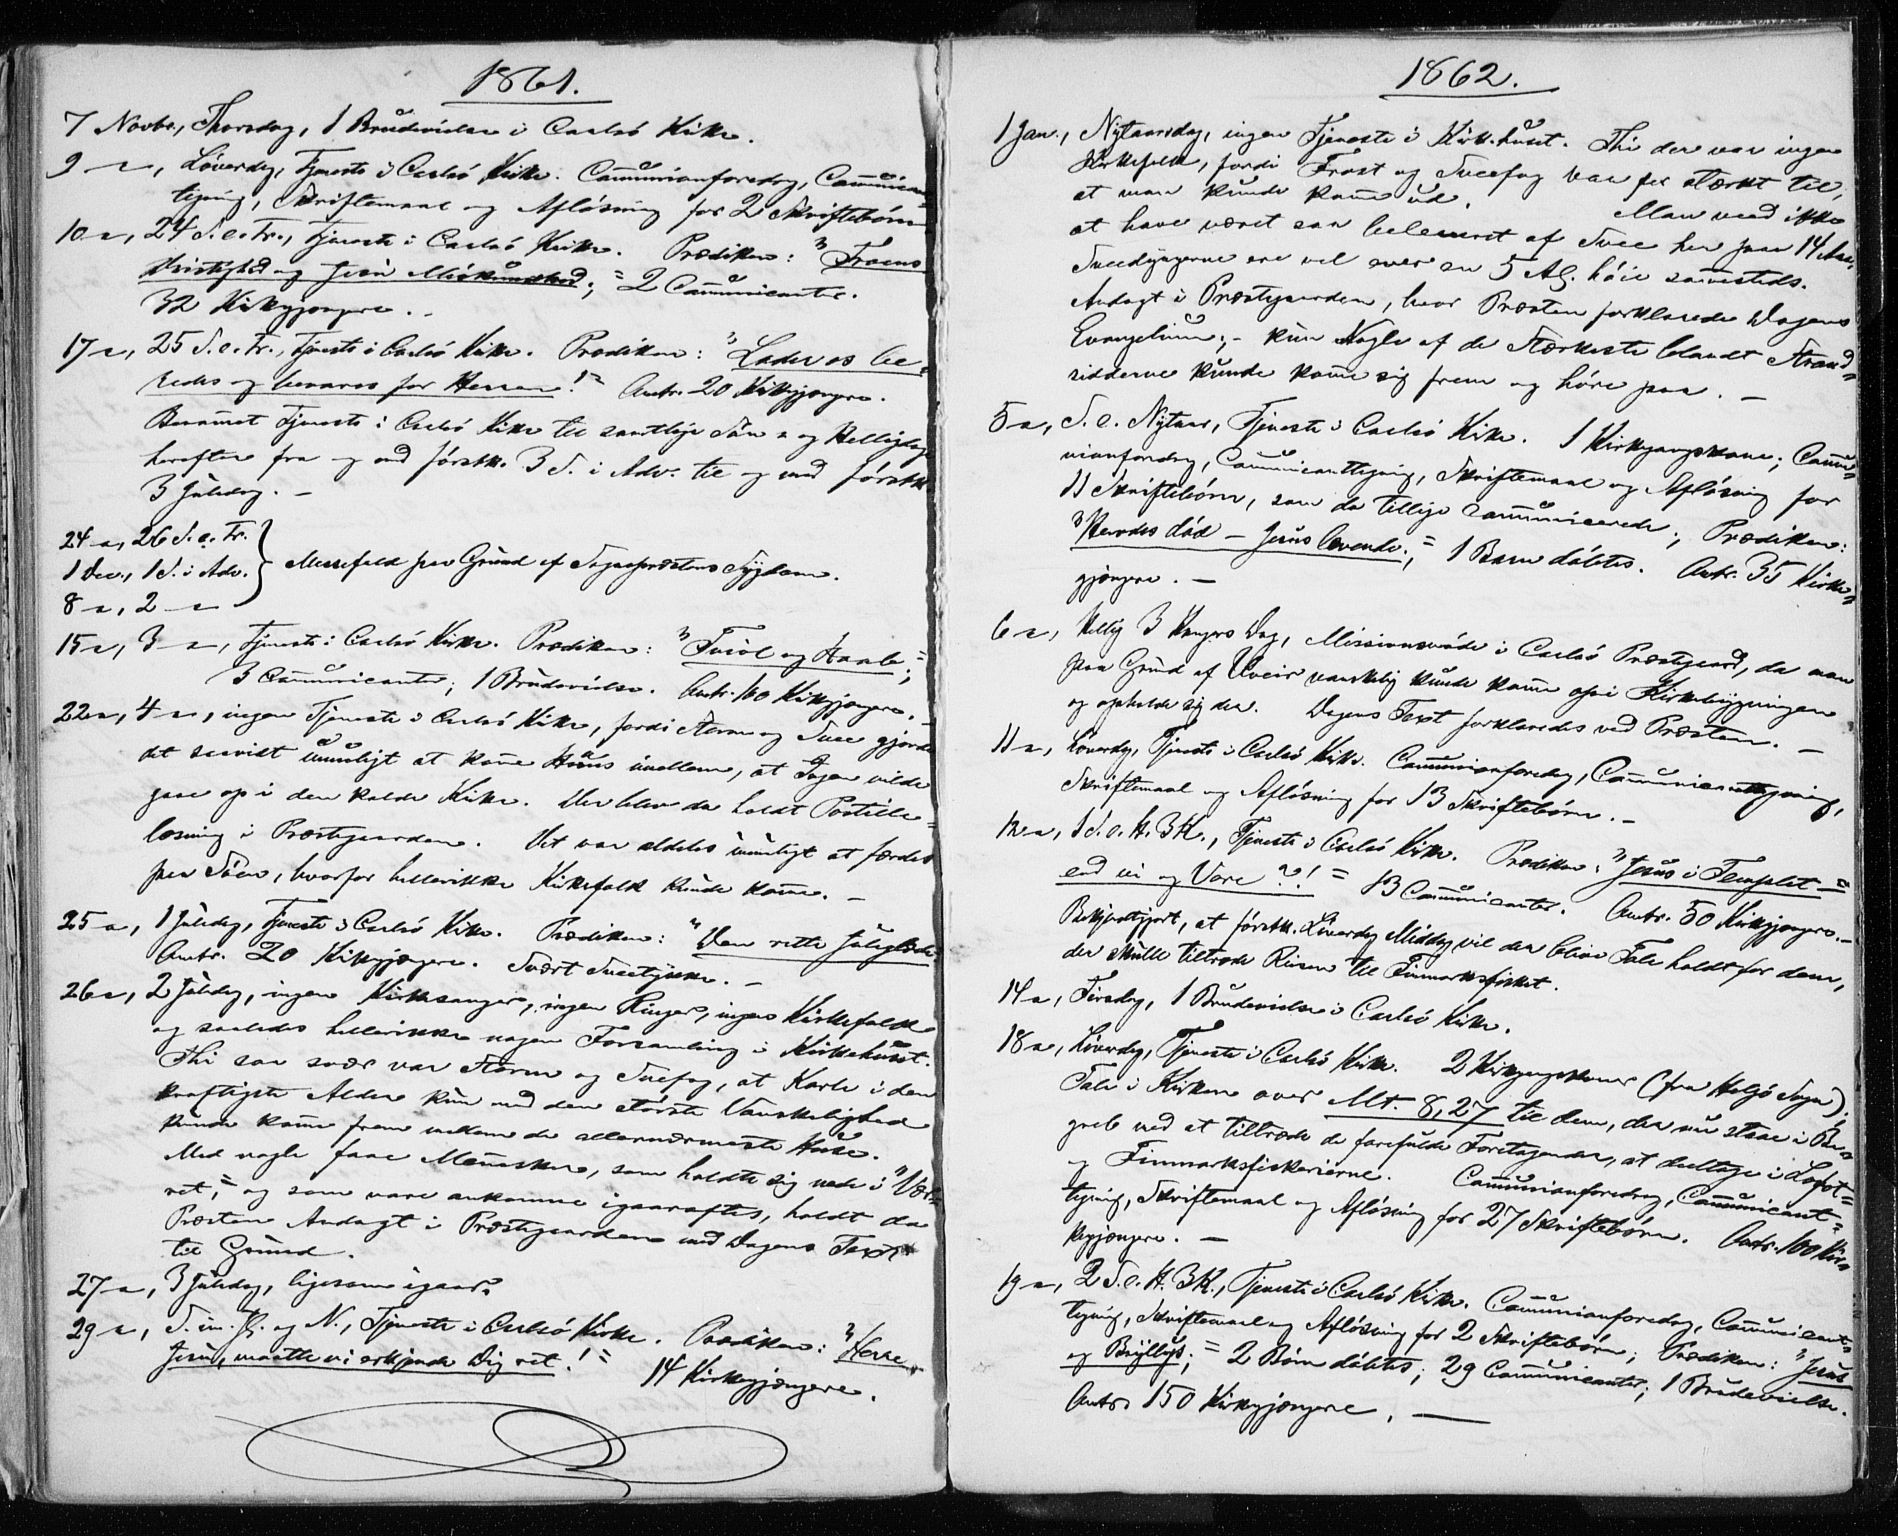 1861.
7 Novbr., Thorsdag, 1 Brudevielse i Carlsö Kirke.
9 –, Löverdag, Tjeneste i Carlsö Kirke. Communionforedrag, Communican=
tegning, Skriftemaal og Aflösning for 2 Skriftebörn.
10 –, 24 S. e. Tr., Tjeneste i Carlsö Kirke. Prædiken: "Troens
Dristighed og Jesu Miskundhed;" 2 Communicanter.
32 Kirkegjængere. –
17 –, 25 S. e. Tr., Tjeneste i Carlsö Kirke. Prædiken: "Lader os be=
redes og bevares for Herren!" Omtr. 20 Kirkegjængere.
Berammet Tjeneste i Carlsö Kirke til samtlige Sön= og Helligdage
herefter fra og med förstk. 3 S. i Adv. til og med förstk.
3 Juledag. –
24 –, 26 S. e. Tr.
1 Dec., 1 S. i Adv. Messefald paa Grund af Sognepræstens Sygdom.
8 –, 2 –
15 –, 3 –, Tjeneste i Carlsö Kirke. Prædiken: "Tvivl og Haab;"
3 Communicanter; 1 Brudevielse. Omtr. 160 Kirkegjængere. –
22 –, 4 –, ingen Tjeneste i Carlsö Kirke, fordi Storm og Snee gjorde
det saavidt umuligt at komme Huus imellem, at Ingen vilde
gaae op i den kolde Kirke. Der blev da holdt Postille=
læsning i Præstegaarden. Det var aldeles umuligt at færdes
paa Söen, hvorfor hellerikke Kirkefolk kunde komme. –
25 –, 1 Juledag, Tjeneste i Carlsö Kirke. Prædiken: "Den rette Juleglæde."
Omtr. 20 Kirkegjængere. Svært Sneetykke. –
26 –, 2 Juledag, ingen Kirkesanger, ingen Ringer, ingen Kirkefolk
og saaledes hellerikke nogen Forsamling i Kirkehuset.
Thi saa svær var Storm og Sneefog, at Karle i den
kraftigste Alder kun med den störste Vanskelighed
kunde komme frem mellem de allernærmeste Huse.
Med nogle faae Mennesker, som holdte sig nede i "Væ=
ret," og som vare ankomne igaaraftes, holdt da
Præsten Andagt i Præstegaarden med Dagens Text
til Grund.
27 –, 3 Juledag, ligesom igaar.
29 –, S. m. J. og N., Tjeneste i Carlsö Kirke. Prædiken: "Herre
Jesu, maatte vi erkjende Dig ret!" 14 Kirkegjængere.
1862.
1 Jan., Nytaarsdag, ingen Tjeneste i Kirkehuset. Thi der var ingen
Kirkefolk, fordi Frost og Sneefog var for stærkt til,
at man kunde komme ud. Man veed ikke
at have været saa beleiret af Snee her paa 14 Aar.
Sneedyngerne ere vel over en 5 Al. höie somesteds.
Andagt i Præstegaarden, hvor Præsten forklarede Dagens
Evangelium; – kun Nogle af de Stærkeste blandt Strand=
sidderne kunde komme sig frem og höre paa. –
5 –, S. e. Nytaar, Tjeneste i Carlsö Kirke. 1 Kirkegangskone; Commu=
nionforedrag, Communicanttegning, Skriftemaal og Aflösning for
11 Skriftebörn, som da tillige communicerede; Prædiken:
"Herodes död – Jesus levende;" 1 Barn döbtes. Omtr. 35 Kirke=
gjængere. –
6 –, Hellig 3 Kongers Dag, Missionsmöde i Carlsö Præstegaard, da man
paa Grund af Uveir vanskelig kunde komme op i Kirkebygningen
og opholde sig der. Dagens Text forklaredes ved Præsten. –
11 –, Löverdag, Tjeneste i Carlsö Kirke. Communionforedrag, Communicanttegning,
Skriftemaal og Aflösning for 13 Skriftebörn. –
12 –, 1 S. e. H. 3 K., Tjeneste i Carlsö Kirke. Prædiken: "Jesus i Templet –
end vi og Vore?!" 13 Communicanter. Omtr. 50 Kirkegjængere. –
Bekjendtgjort, at förstk. Löverdag Middag vil der blive Tale holdt for dem,
der skulle tiltræde Reisen til Finmarksfisket.
14 –, Tirsdag, 1 Brudevielse i Carlsö Kirke.
18 –, Löverdag, Tjeneste i Carlsö Kirke. 2 Kirkegangskoner (fra Helgö Sogn);
Tale i Kirken over Mt. 8,27 til dem, der nu staae i Be=
greb med at tiltræde de farefulde Foretagender, at deeltage i Lofot=
og Finmarksfiskerierne. Communionforedrag, Communicant=
tegning, Skriftemaal og Aflösning for 27 Skriftebörn. Omtr. 100 Kir=
kegjængere. –
19 –, 2 S. e. H. 3 K., Tjeneste i Carlsö Kirke. Communionforedrag, Communicant=
tegning, Skriftemaal og Aflösning for 2 Skriftebörn; Prædiken: "Jesus
og Bryllup;" 2 Börn döbtes; 29 Communicanter; 1 Brudevielse.
Omtr. 150 Kirkegjængere. –